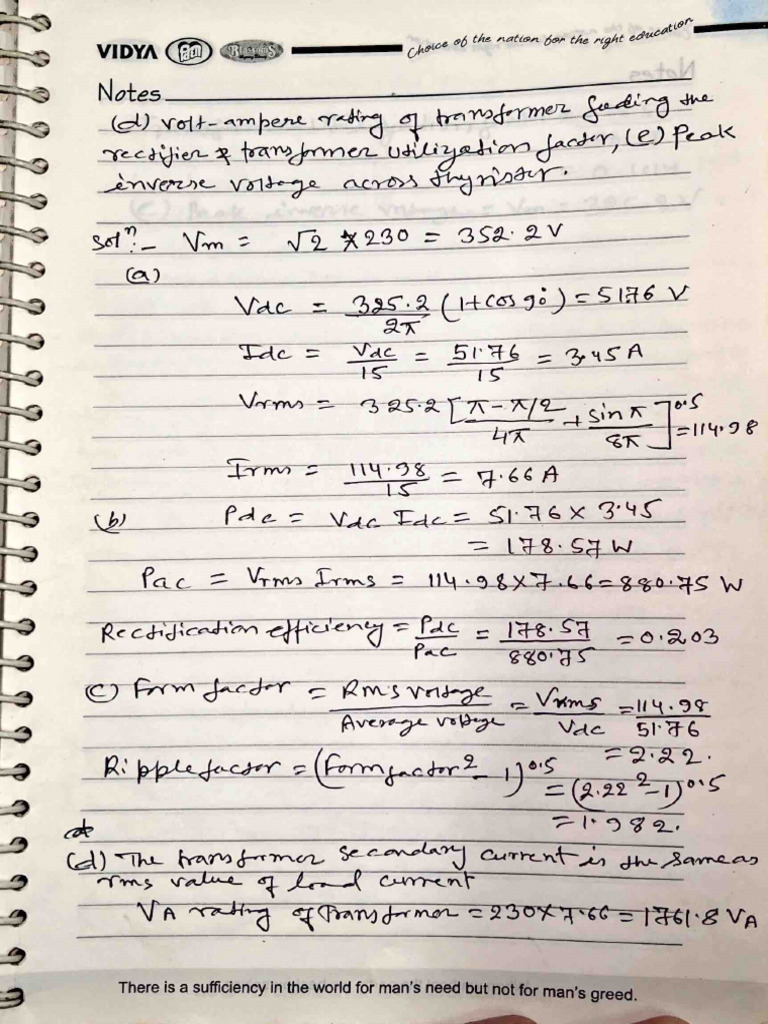 VIDYA
Blossoms
Choice of the nation for the right education
Notes
(d) volt-ampere rating of transformer feeding the
rectifier & transformer utilization factor, (e) Peak
inverse voltage across thyristor.
Solⁿ:- Vm = √2 × 230 = 352.2 V
(a)
Vdc = 325.2/2π (1+cos 90°) = 5176 V
Idc = Vdc/15 = 51.76/15 = 3.45 A
Vrms = 325.2 [π-π/2/4π + sin π/8π]^0.5 = 114.98
Irms = 114.98/15 = 7.66 A
(b) Pdc = Vdc Idc = 51.76 × 3.45
= 178.57 W
Pac = Vrms Irms = 114.98×7.66 = 880.75 W
Rectification efficiency = Pdc/Pac = 178.57/880.75 = 0.203
(c) Form factor = Rms voltage/Average voltage = Vrms/Vdc = 114.98/51.76
= 2.22.
Ripple factor = (Form factor² - 1)^0.5
= (2.22² - 1)^0.5
= 1.982.
(d) The transformer secondary current is the same as
rms value of load current
VA rating of Transformer = 230×7.66 = 1761.8 VA
There is a sufficiency in the world for man's need but not for man's greed.